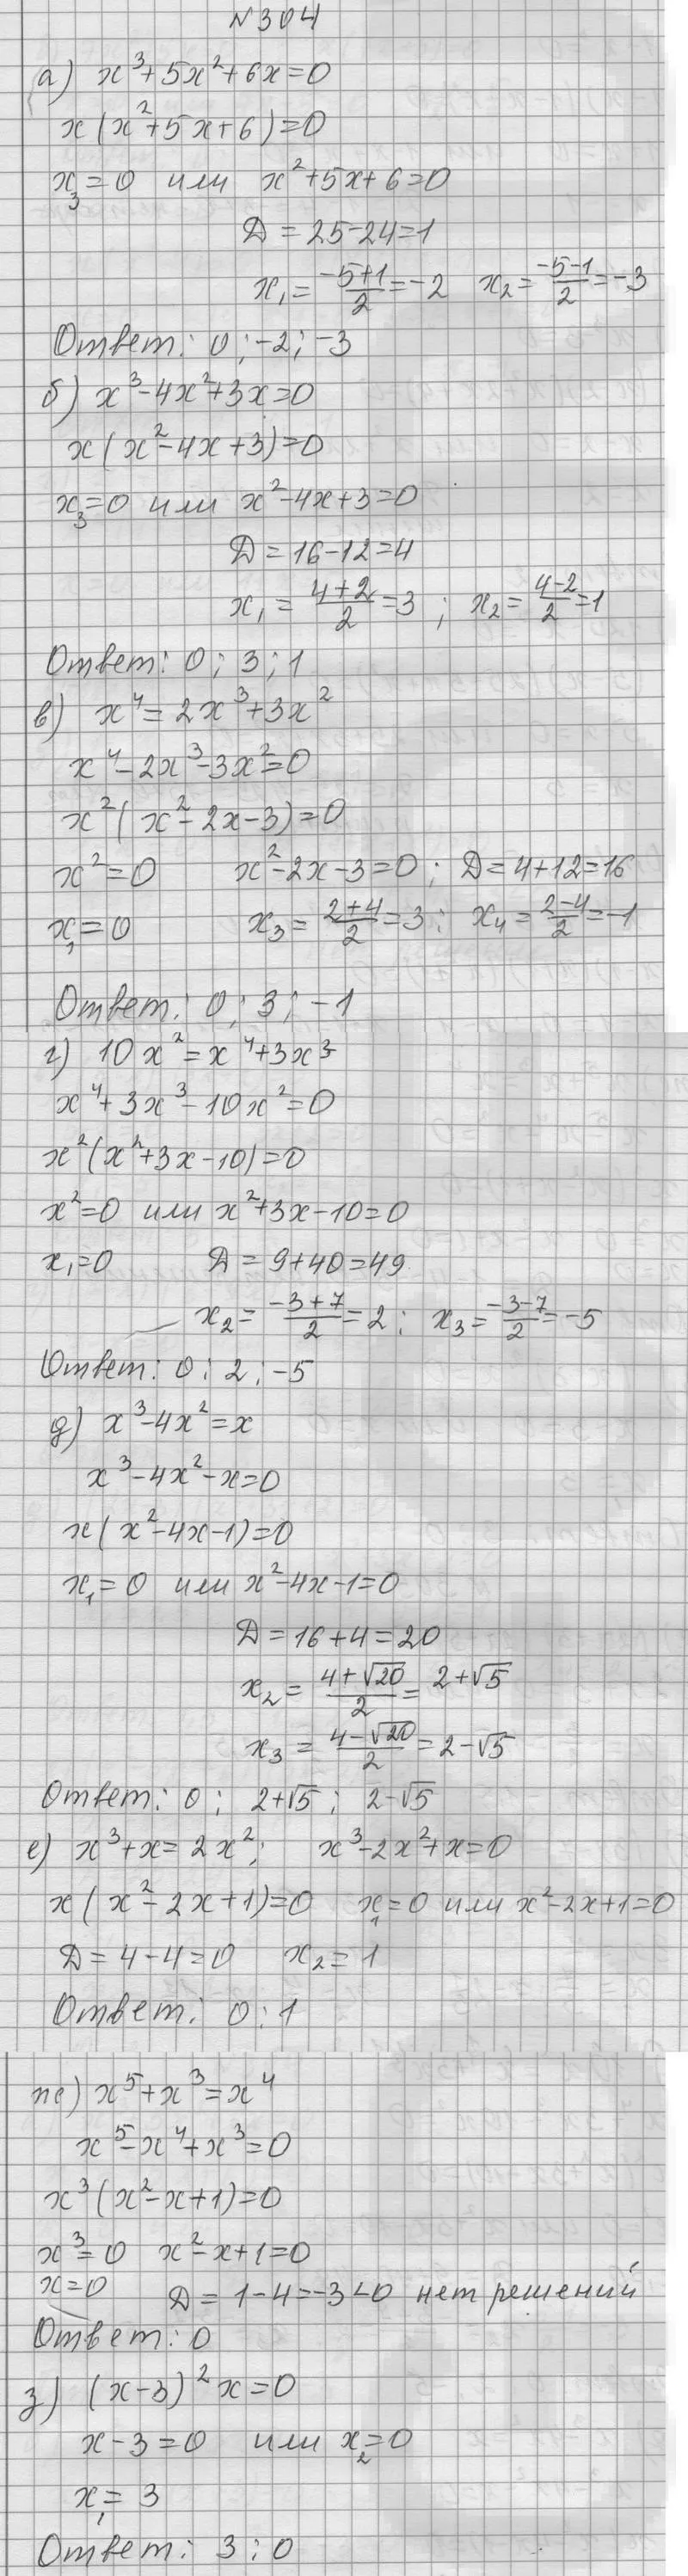 N 304
а) x³+5x²+6x=0
x(x²+5x+6)=0
x₃=0 или x²+5x+6=0
D=25-24=1
x₁=(-5+1)/2=-2 x₂=(-5-1)/2=-3
Ответ: 0; -2; -3
б) x³-4x²+3x=0
x(x²-4x+3)=0
x₃=0 или x²-4x+3=0
D=16-12=4
x₁=(4+2)/2=3; x₂=(4-2)/2=1
Ответ: 0; 3; 1
в) x⁴=2x³+3x²
x⁴-2x³-3x²=0
x²(x²-2x-3)=0
x²=0 x²-2x-3=0; D=4+12=16
x₁=0 x₃=(2+4)/2=3; x₄=(2-4)/2=-1
Ответ: 0; 3; -1
г) 10x²=x⁴+3x³
x⁴+3x³-10x²=0
x²(x²+3x-10)=0
x²=0 или x²+3x-10=0
x₁=0 D=9+40=49
x₂=(-3+7)/2=2; x₃=(-3-7)/2=-5
Ответ: 0; 2; -5
д) x³-4x²=x
x³-4x²-x=0
x(x²-4x-1)=0
x₁=0 или x²-4x-1=0
D=16+4=20
x₂=(4+√20)/2=2+√5
x₃=(4-√20)/2=2-√5
Ответ: 0; 2+√5; 2-√5
е) x³+x=2x²; x³-2x²+x=0
x(x²-2x+1)=0 x₁=0 или x²-2x+1=0
D=4-4=0 x₂=1
Ответ: 0; 1
ж) x⁵+x³=x⁴
x⁵-x⁴+x³=0
x³(x²-x+1)=0
x³=0 x²-x+1=0
x=0 D=1-4=-3<0 нет решений
Ответ: 0
з) (x-3)²x=0
x-3=0 или x₂=0
x₁=3
Ответ: 3; 0